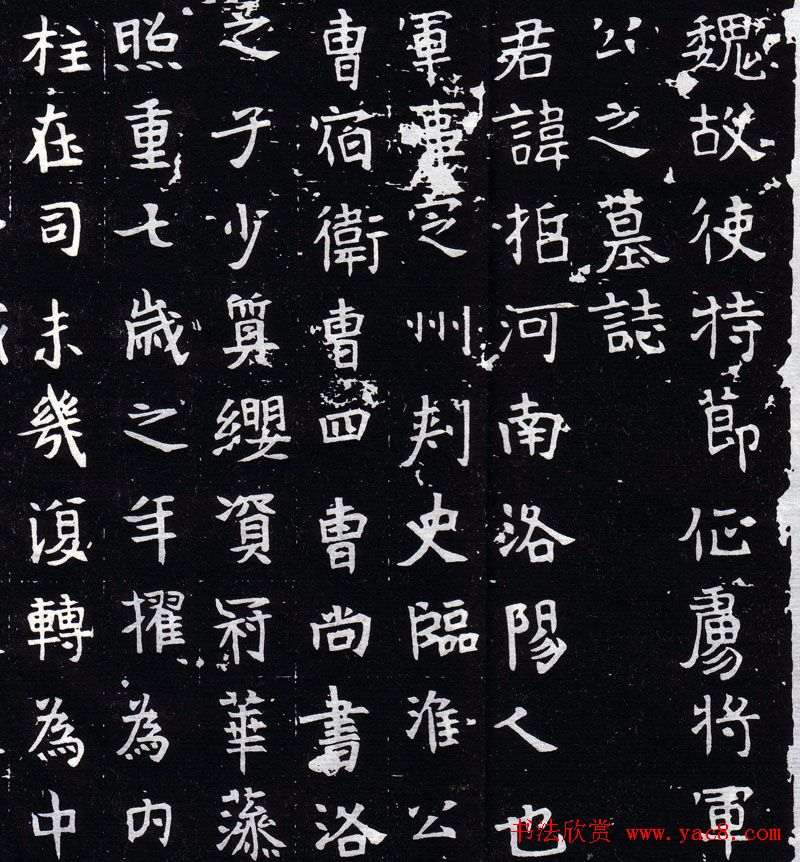 魏故使持節征虜將軍
公之墓誌
君諱河南洛陽人也
軍事定州刺史臨淮公
曹宿衛曹四曹尚書洛
之子少纓資冠華藻
照重七歲之年擢為內
柱在司未幾復轉為中
书法欣赏 www.yac8.com